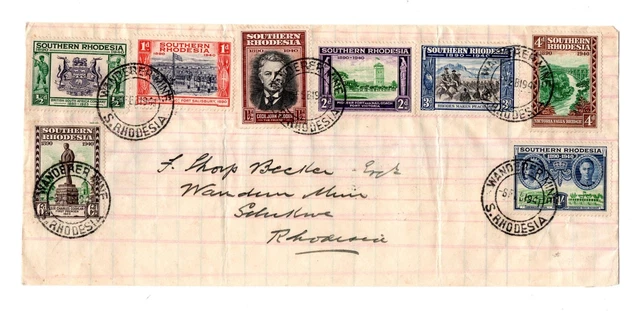 SOUTHERN RHODESIA
1890 1940
½d
SOUTHERN RHODESIA
1d 1d
1890 1940
FORT SALISBURY, 1890
SOUTHERN RHODESIA
1890 1940
CECIL JOHN RHODES
1½d
SOUTHERN RHODESIA
1890-1940
FORT VICTORIA
2d 2d
SOUTHERN RHODESIA
1890 1940
RHODES MAKES PEACE
3d
4d
SOUTHERN RHODESIA
1890 1940
VICTORIA FALLS BRIDGE
WANDERER MINE
S. RHODESIA
SOUTHERN RHODESIA
1890 1940
6d 6d
WANDERER MINE
S. RHODESIA
SOUTHERN RHODESIA
1890-1940
1/-
WANDERER MINE
S. RHODESIA
J. Thorp Becker Esq
Wanderer Mine
Selukwe
Rhodesia